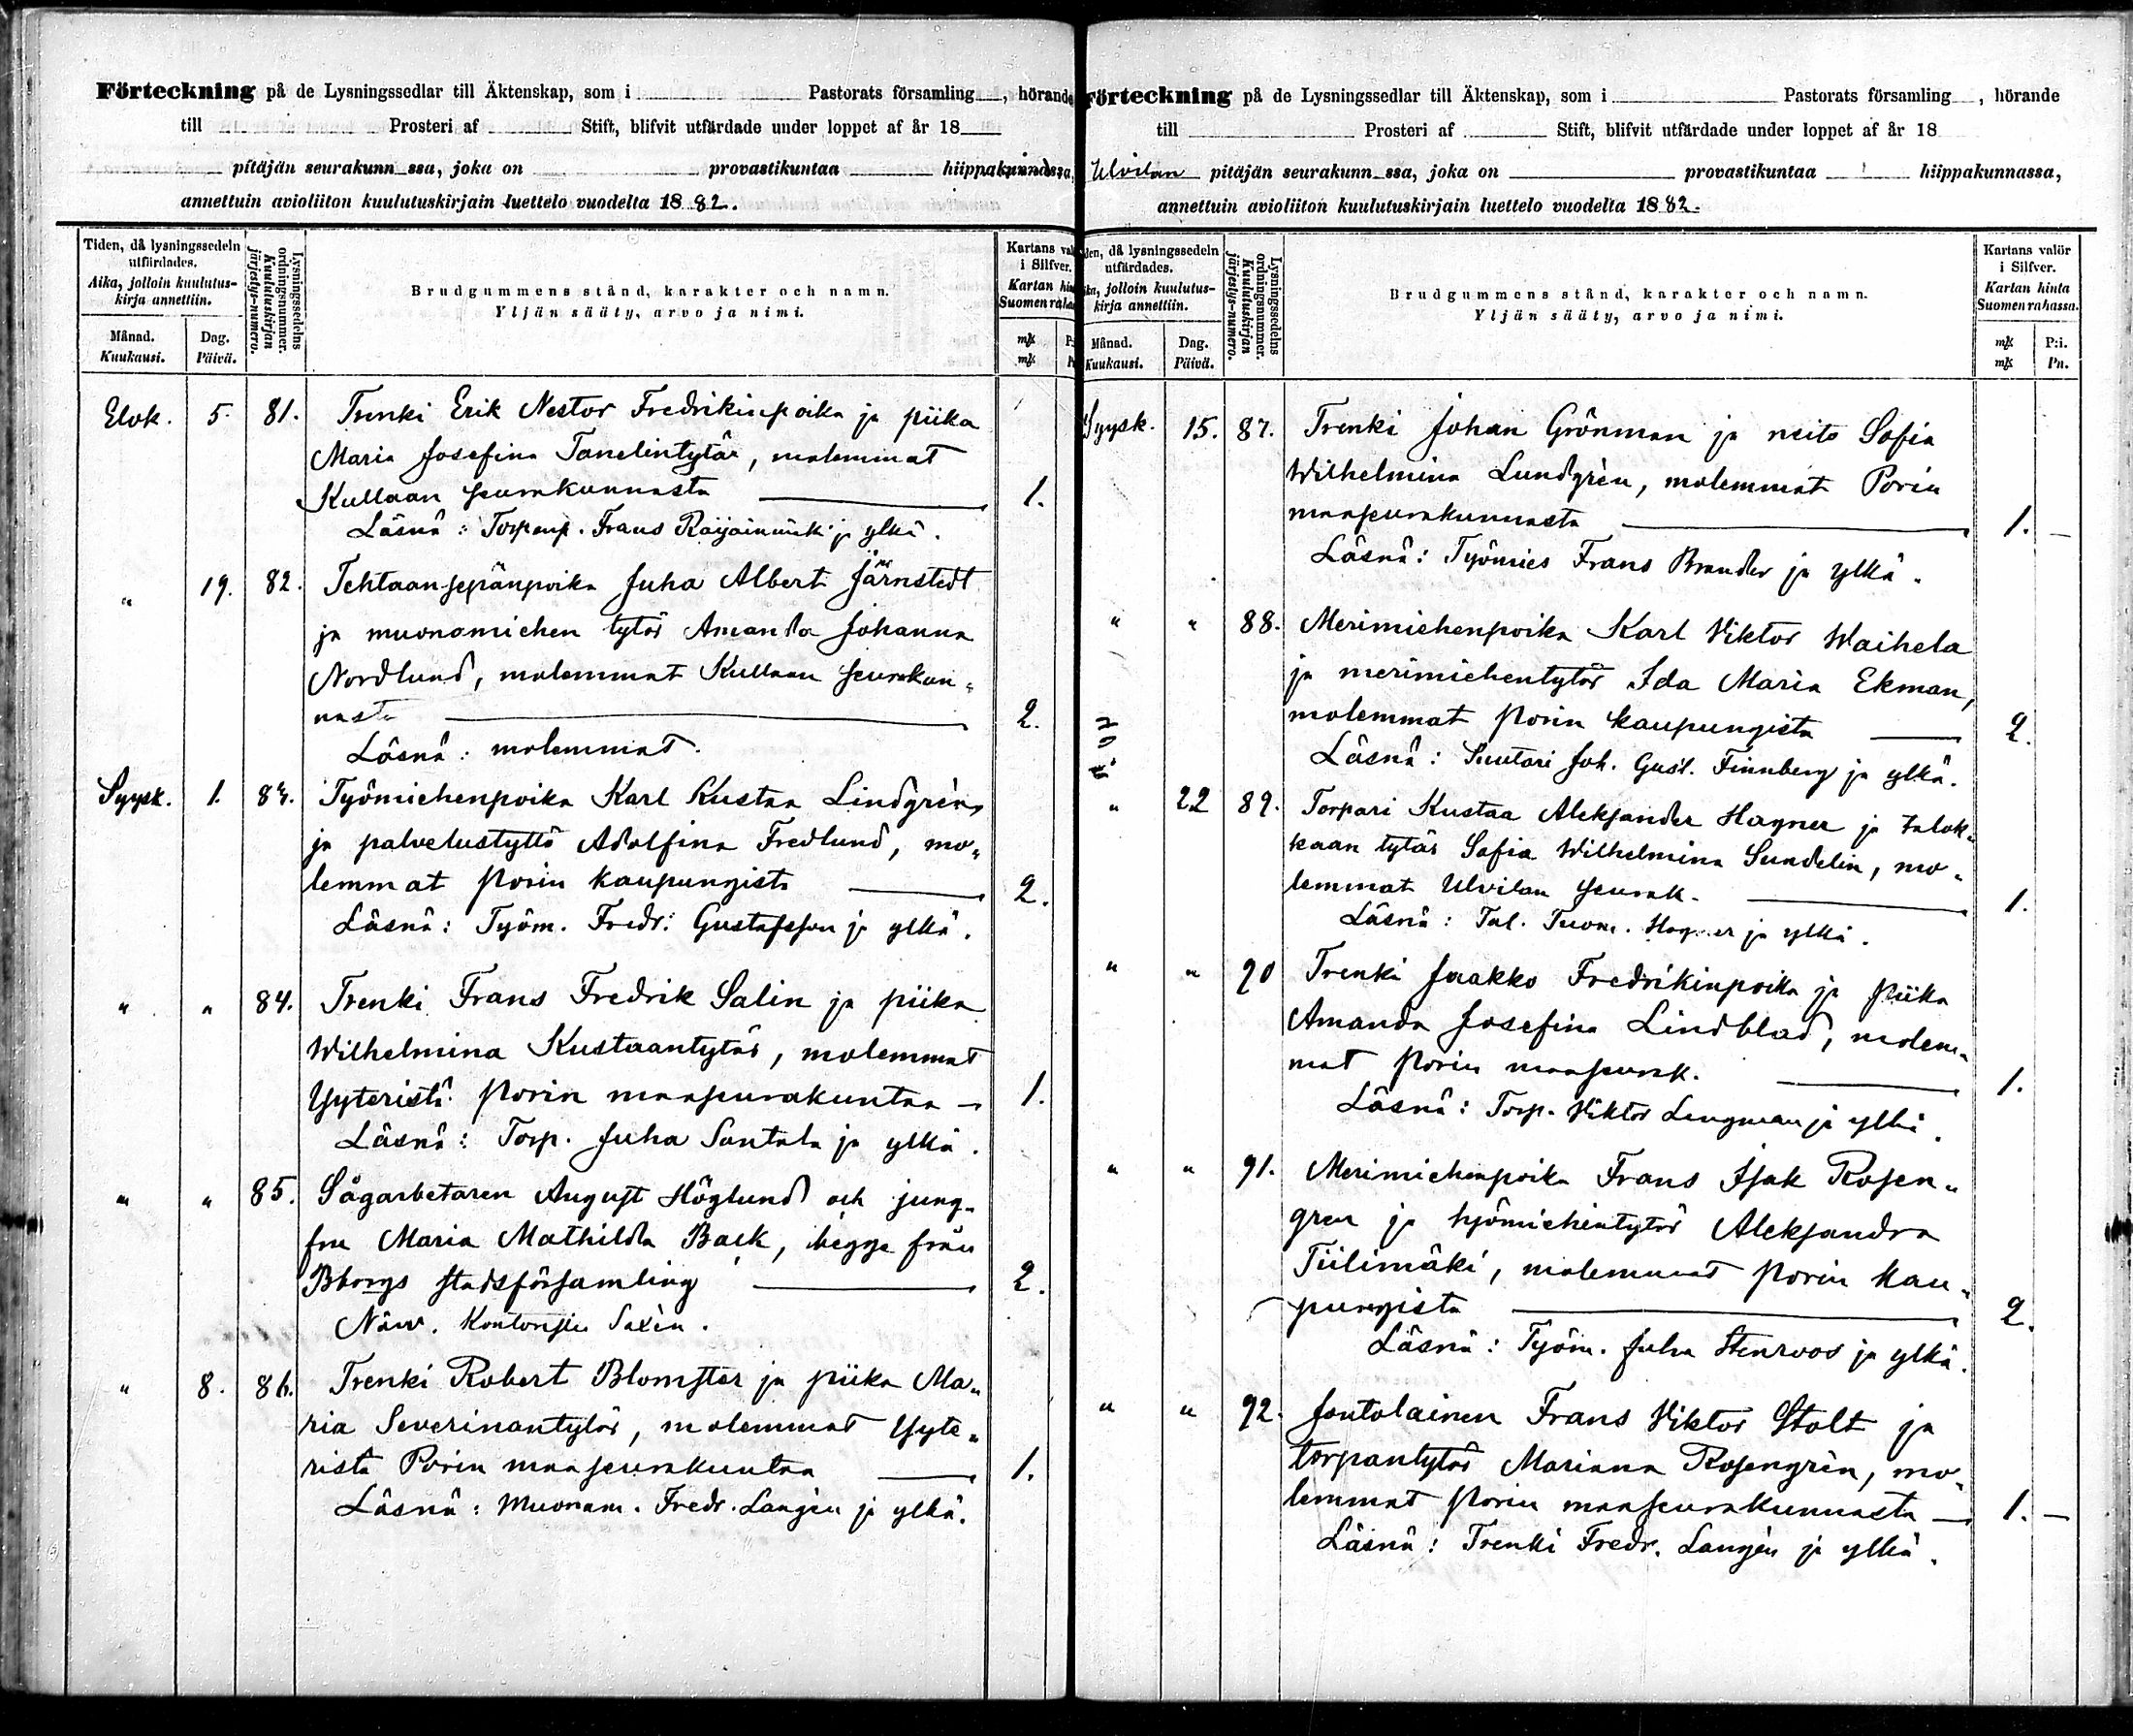 Förteckning på de Lysningssedlar till Äktenskap, som i Pastorats församling, hörande
till Prosteri af Stift, blifvit utfärdade under loppet af år 18
pitäjän seurakunn ssa, joka on provastikuntaa hiippakunnassa,
annettuin avioliiton kuulutuskirjain luettelo vuodelta 1882.
Tiden, då lysningssedeln utfärdades.
Aika, jolloin kuulutus-kirja annettiin.
Månad.
Kuukausi.
Dag.
Päivä.
Lysningssedelns ordningsnummer.
Kuulutuskirjan järjestys-numero.
Brudgummens stånd, karakter och namn.
Yljän sääty, arvo ja nimi.
Kartans val
i Silfver.
Kartan hin
Suomen raha
mk
mk
Elok. 5. 81. Trenki Erik Nestor Fredrikinpoika ja piika
Maria Josefina Tanelintytär, molemmat
Kullaan seurakunnasta 1.
Läsnä: Torpanp. Frans ja ylkä.
" 19. 82. Tehtaansepänpoika Juha Albert Järnstedt
ja muonamiehen tytär Amanda Johanna
Nordlund, molemmat Kullaan seurakun„
nasta 2.
Läsnä: molemmat.
Syysk. 1. 83. Työmiehenpoika Karl Kustaa Lindgrén
ja palvelustyttö Adolfina Fredlund, mo„
lemmat Porin kaupungista 2.
Läsnä: Työm. Fredr. Gustafsson ja ylkä.
" " 84. Trenki Frans Fredrik Salin ja piika
Wilhelmina Kustaantytär, molemmat
Yyteristä Porin maaseurakuntaa 1.
Läsnä: Torp. Juha Santala ja ylkä.
" " 85. Sågarbetaren August Höglund och jung„
fru Maria Mathilda Back, begge från
Bborgs stadsförsamling 2.
Närv. Kontorsten Saxén.
" 8. 86. Trenki Robert Blomster ja piika Ma„
ria Severinantytär, molemmat Yyte„
ristä Porin maaseurakuntaa 1.
Läsnä: Muonam. Fredr. Langén ja ylkä.
Förteckning på de Lysningssedlar till Äktenskap, som i Pastorats församling, hörande
till Prosteri af Stift, blifvit utfärdade under loppet af år 18
Ulvilan pitäjän seurakunn ssa, joka on provastikuntaa hiippakunnassa,
annettuin avioliiton kuulutuskirjain luettelo vuodelta 1882.
den, då lysningssedeln utfärdades.
ka, jolloin kuulutus-kirja annettiin.
Månad.
Kuukausi.
Dag.
Päivä.
Lysningssedelns ordningsnummer.
Kuulutuskirjan järjestys-numero.
Brudgummens stånd, karakter och namn.
Yljän sääty, arvo ja nimi.
Kartans valör
i Silfver.
Kartan hinta
Suomen rahassa.
mk P:i.
mk Pn.
Syysk. 15. 87. Trenki Johan Grönman ja neito Sofia
Wilhelmina Lundgrén, molemmat Porin
maaseurakunnasta 1. —
Läsnä: Työmies Frans Brander ja ylkä.
" " 88. Merimiehenpoika Karl Viktor Waihela
ja merimiehentytär Ida Maria Ekman,
molemmat Porin kaupungista 2.
Läsnä: Suutari Joh. Gust. Finnberg ja ylkä.
" 22 89. Torpari Kustaa Aleksander Hagner ja talok„
kaan tytär Sofia Wilhelmina Sundelin, mo„
lemmat Ulvilan seurak. 1.
Läsnä: Tal. Tuom. Hagner ja ylkä.
" " 90 Trenki Jaakko Fredrikinpoika ja piika
Amanda Josefina Lindblad, molem„
mat Porin maaseurak. 1.
Läsnä: Torp. Viktor Lengman ja ylkä.
" " 91. Merimiehenpoika Frans Isak Rosen„
gren ja työmiehentytär Aleksandra
Tiilimäki, molemmat Porin kau„
pungista 2.
Läsnä: Työm. Juha Stenroos ja ylkä.
" " 92. Jontolainen Frans Viktor Stolt ja
torpantytär Mariana Rosengrén, mo„
lemmat Porin maaseurakunnasta 1. —
Läsnä: Trenki Fredr. Langén ja ylkä.